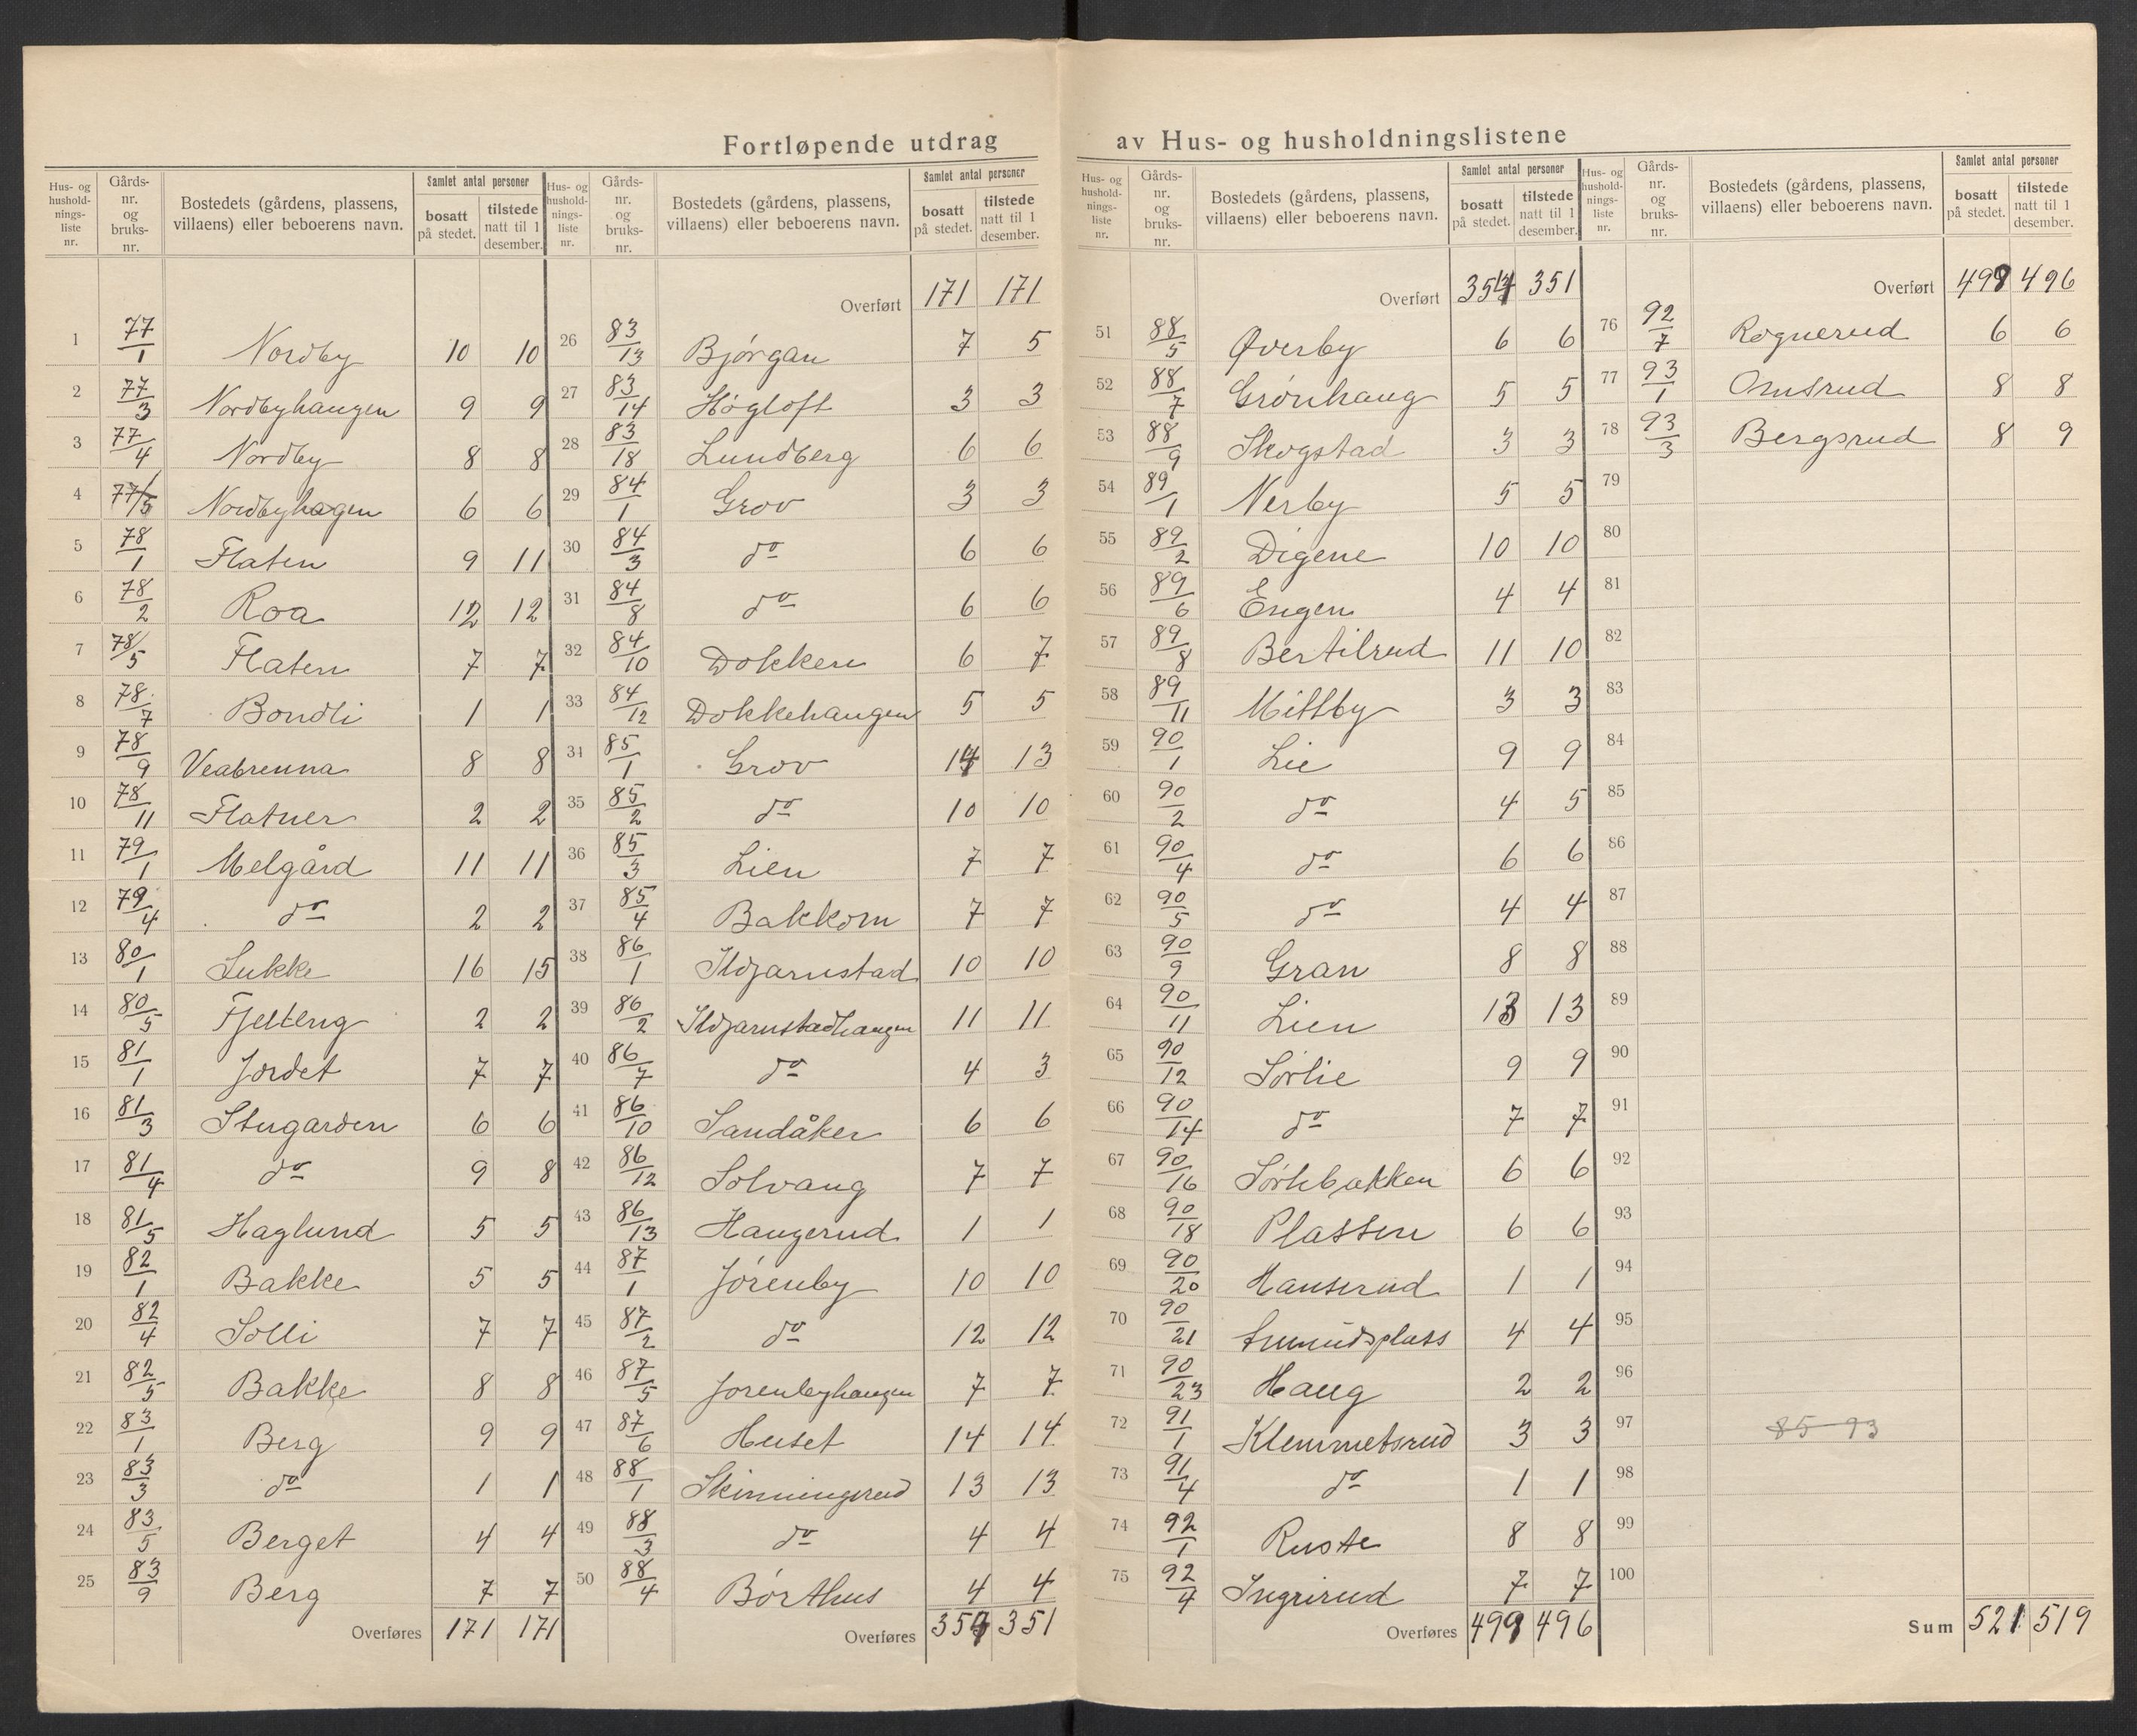 Fortløpende utdrag av Hus- og husholdningslistene
Hus- og hushold-nings-liste nr. Gårds-nr. og bruks-nr. Bostedets (gårdens, plassens, villaens) eller beboerens navn. Samlet antal personer bosatt på stedet. tilstede natt til 1 desember.
1 77/1 Nordby 10 10
2 77/3 Nordbyhaugen 9 9
3 77/4 Nordby 8 8
4 77/5 Nordbyhagen 6 6
5 78/1 Flaten 9 11
6 78/2 Roa 12 12
7 78/5 Flaten 7 7
8 78/7 Bondli 1 1
9 78/9 Veabrenna 8 8
10 78/11 Flatner 2 2
11 79/1 Melgård 11 11
12 79/4 do 2 2
13 80/1 Lukke 16 15
14 80/5 Fjelleng 2 2
15 81/1 Jordet 7 7
16 81/3 Stugarden 6 6
17 81/4 do 9 8
18 81/5 Haglund 5 5
19 82/1 Bakke 5 5
20 82/4 Solli 7 7
21 82/5 Bakke 8 8
22 83/1 Berg 9 9
23 83/3 do 1 1
24 83/5 Berget 4 4
25 83/9 Berg 7 7
Overføres 171 171
Hus- og hushold-nings-liste nr. Gårds-nr. og bruks-nr. Bostedets (gårdens, plassens, villaens) eller beboerens navn. Samlet antal personer bosatt på stedet. tilstede natt til 1 desember.
Overført 171 171
26 83/13 Bjørgan 7 5
27 83/14 Høgloft 3 3
28 83/18 Lundberg 6 6
29 84/1 Grov 3 3
30 84/3 do 6 6
31 84/8 do 6 6
32 84/10 Dokken 6 7
33 84/12 Dokkehaugen 5 5
34 85/1 Grov 14 13
35 85/2 do 10 10
36 85/3 Lien 7 7
37 85/4 Bakkom 7 7
38 86/1 Ildjarnstad 10 10
39 86/2 Ildjarnstadhaugen 11 11
40 86/7 do 4 3
41 86/10 Sandåker 6 6
42 86/12 Solvang 7 7
43 86/13 Haugerud 1 1
44 87/1 Jørenby 10 10
45 87/2 do 12 12
46 87/5 Jorenbyhaugen 7 7
47 87/6 Huset 14 14
48 88/1 Skinningsrud 13 13
49 88/3 do 4 4
50 88/4 Børthus 4 4
Overføres 354 351
Hus- og hushold-nings-liste nr. Gårds-nr. og bruks-nr. Bostedets (gårdens, plassens, villaens) eller beboerens navn. Samlet antal personer bosatt på stedet. tilstede natt til 1 desember.
Overført 354 351
51 88/5 Øverby 6 6
52 88/7 Grønhaug 5 5
53 88/9 Skogstad 3 3
54 89/1 Nerby 5 5
55 89/2 Digene 10 10
56 89/6 Engen 4 4
57 89/8 Bertilrud 11 10
58 89/11 Mittby 3 3
59 90/1 Lie 9 9
60 90/2 do 4 5
61 90/4 do 6 6
62 90/5 do 4 4
63 90/9 Gran 8 8
64 90/11 Lien 13 13
65 90/12 Sørlie 9 9
66 90/14 do 7 7
67 90/16 Sørlibakken 6 6
68 90/18 Plassen 6 6
69 90/20 Hanserud 1 1
70 90/21 4 4
71 90/23 Haug 2 2
72 91/1 Klemmetsrud 3 3
73 91/4 do 1 1
74 92/1 Ruste 8 8
75 92/4 Ingrirud 7 7
Overføres 499 496
Hus- og hushold-nings-liste nr. Gårds-nr. og bruks-nr. Bostedets (gårdens, plassens, villaens) eller beboerens navn. Samlet antal personer bosatt på stedet. tilstede natt til 1 desember.
Overført 499 496
76 92/7 Rognerud 6 6
77 93/1 Omsrud 8 8
78 93/3 Bergsrud 8 9
79
80
81
82
83
84
85
86
87
88
89
90
91
92
93
94
95
96
97 85 93
98
99
100
Sum 521 519